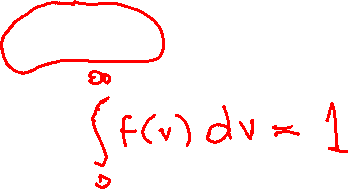 ∫₀^∞ f(v) dv = 1